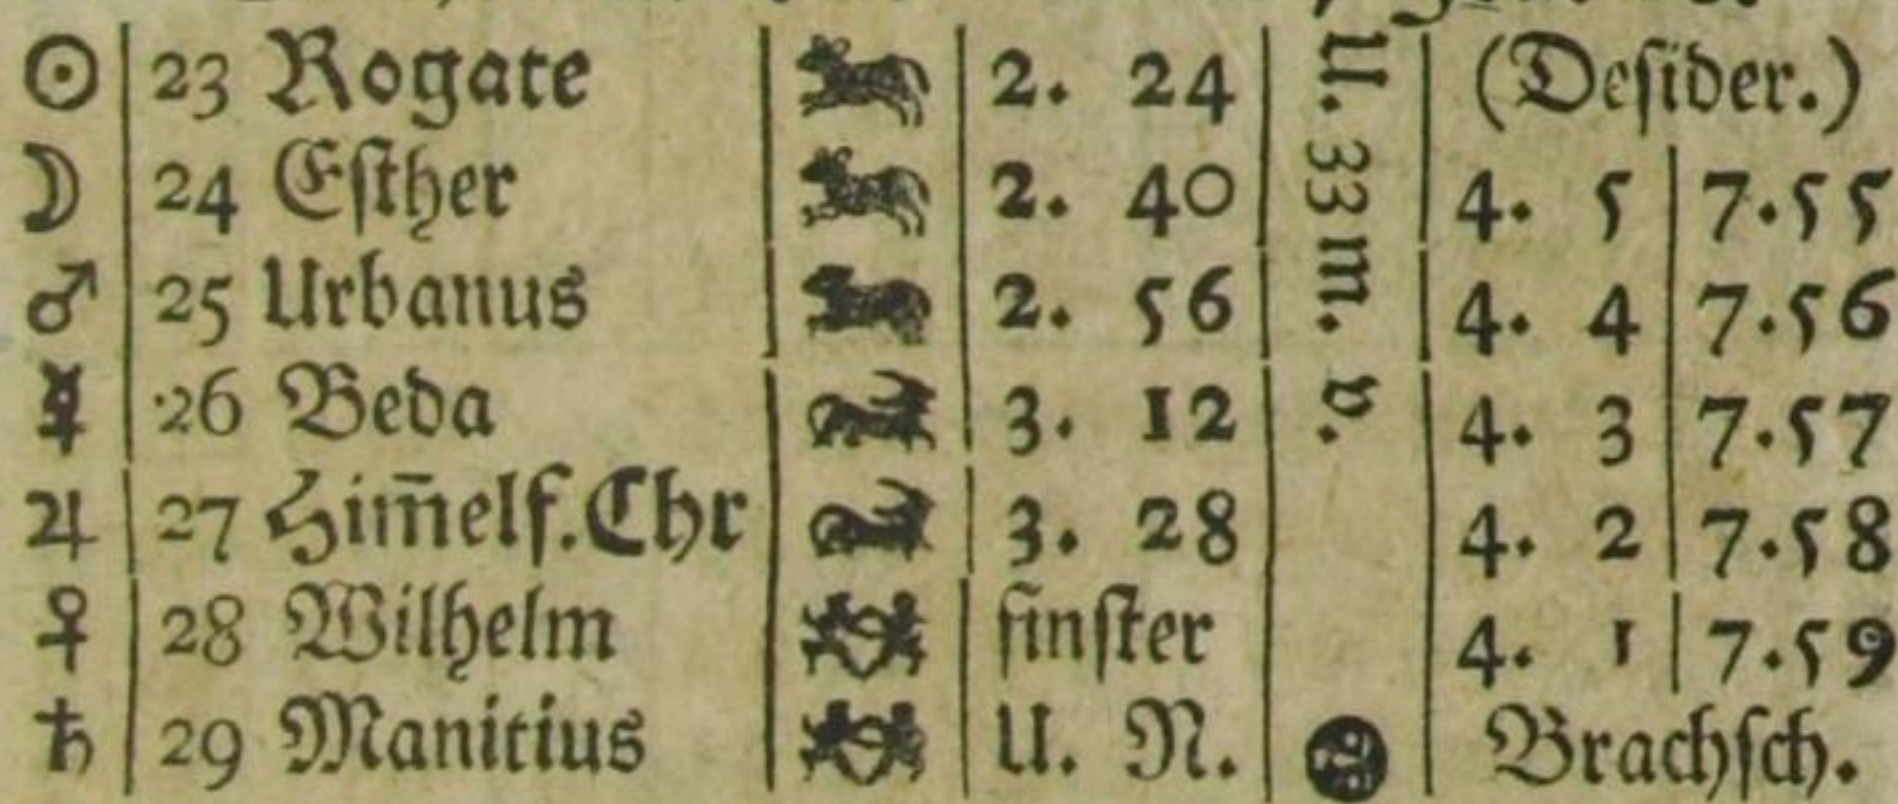 ☉ 23 Rogate 2. 24 (Deſider.)
☽ 24 Eſther 2. 40 4. 5 7.55
♂ 25 Urbanus 2. 56 4. 4 7.56
☿ 26 Beda 3. 12 4. 3 7.57
♃ 27 Him̄elf.Chr 3. 28 4. 2 7.58
♀ 28 Wilhelm finſter 4. 1 7.59
♄ 29 Manitius U. N. Brachſch.
U. 33 m. v.